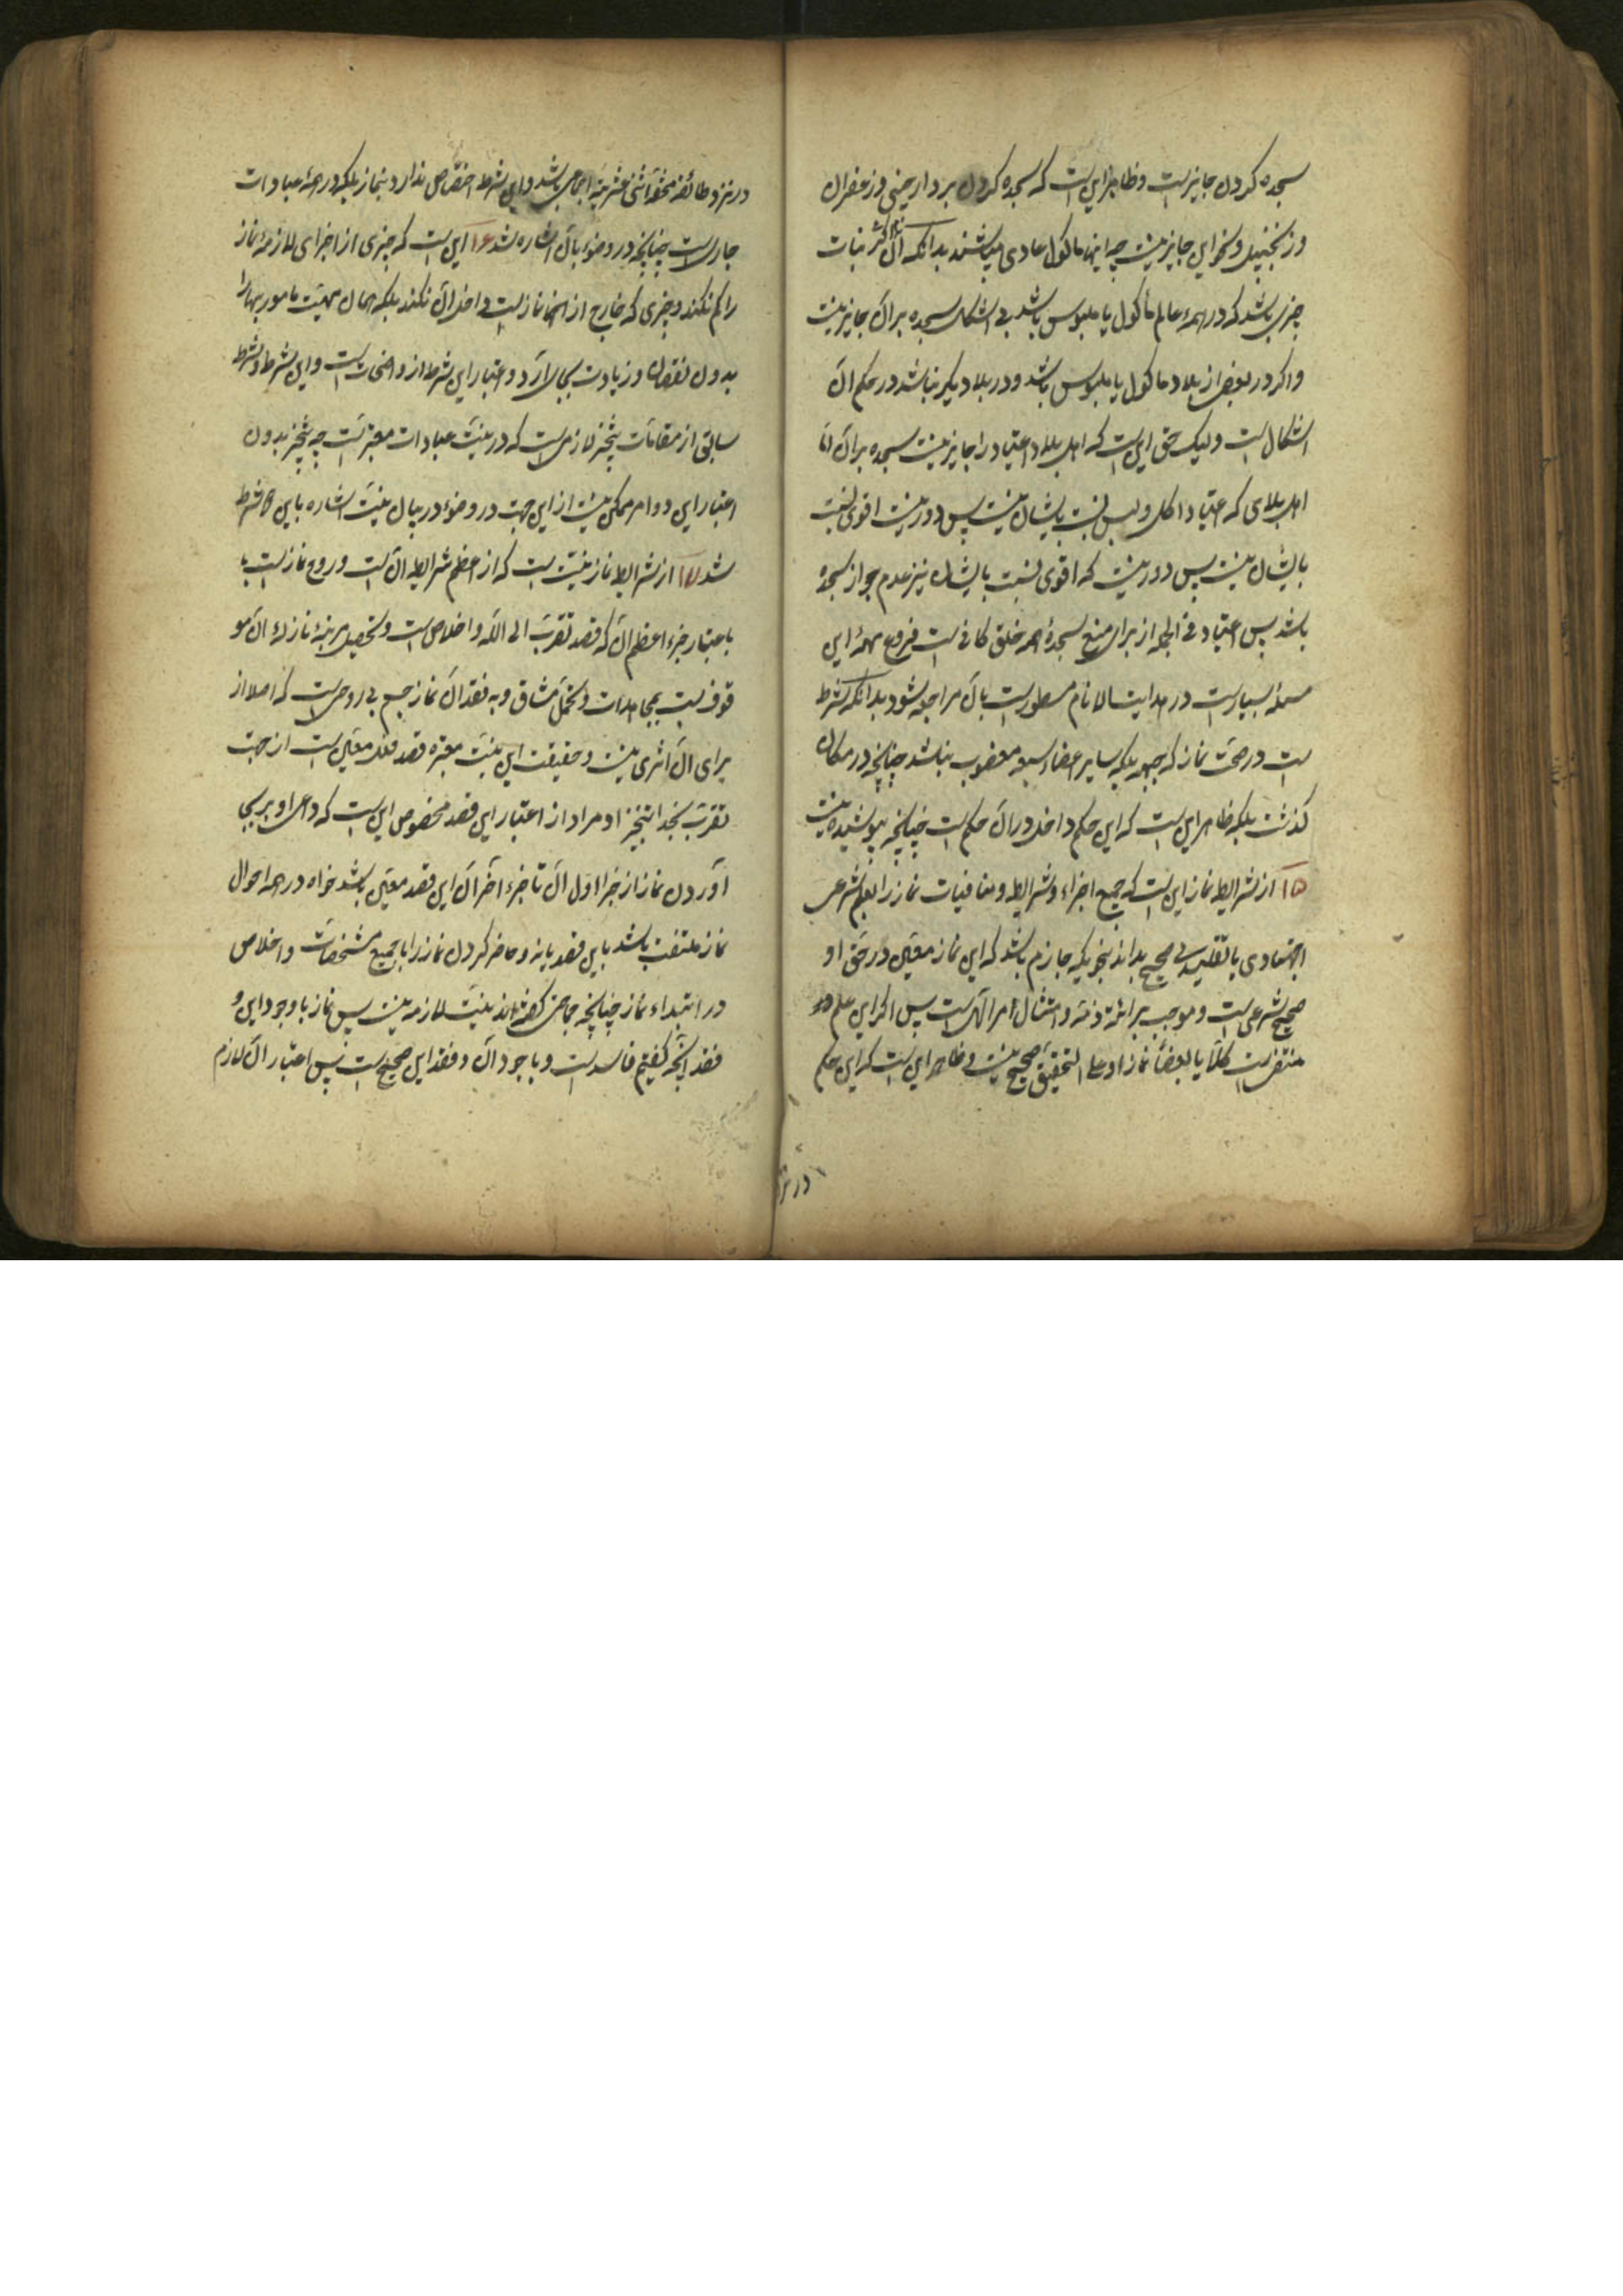 سجده کردن جایز است و ظاهر این است که سجده کردن بر دارچینی و زعفران
و زنجبیل و نحو این جایز نیست چه اینها ماکول عادی میباشند بدانکه اگر نبات
چیزی باشد که در همه عالم مأکول یا ملبوس باشد بی اشکال سجده بر آن جایز نیست
و اگر در بعضی از بلاد ماکول یا ملبوس باشد و در بلاد دیگر نباشد در حکم آن
اشکال است ولیک حق این است که اهل بلاد اعتیاد را جایز نیست سجده بر آن اما
اهل بلادی که اعتیاد اکل و لبس نسبت بایشان نیست پس دور نیست اقوی نسبت
بایشان نیست پس دور نیست که اقوی نسبت بایشان نیز عدم جواز سجده
باشد پس اعتیاد فی الجمله از برای منع سجدهٔ همه خلق کافی است فروع مهمهٔ این
مسئله بسیار است در هدایت الانام مسطور است بآن مراجعه شود بدانکه شرط
است در صحت نماز که جبهه بلکه سایر اعضاء سبعه مغصوب نباشد چنانچه در مکان
گذشت بلکه ظاهر این است که این حکم داخل در آن حکم است چنانچه پوشیده نیست
۱۵ از شرایط نماز این است که جمیع اجزاء و شرایط و منافیات نماز را بعلم شرعی
اجتهادی یا تقلیدی صحیح بداند بنحویکه جازم باشد که این نماز معین در حق او
صحیح شرعی است و موجب برائة ذمه و امتثال امر الهی است پس اگر این علم
منتفی است کلاً یا بعضاً نماز او علی التحقیق صحیح نیست و ظاهر این است که این حکم
در نزد طائفه محقه اثنی عشریه اجماعی باشد و این شرط اختصاص ندارد بنماز بلکه در همهٔ عبادات
جاری است چنانچه در وضوء بآن اشاره شد ۱۶ این است که چیزی از اجزای لازمهٔ نماز
را کم نکند و چیزی که خارج از نماز است داخل آن نکند بلکه همان مهیت مامور بها را
بدون نقصان و زیادت بجای آرد و اعتبار این شرط از واضحات است و این شرط و شرط
سابق از مقامات تنجز لازمی است که در نیت عبادات معتبر است چه تنجز بدون
اعتبار این دو امر ممکن نیست از این جهت در وضوء در بیان نیت اشاره باین هر دو شرط
شد ۱۷ از شرایط نماز نیت است که از اعظم شرایط آن است و روح نماز است
باعتبار جزء اعظم آن که قصد تقرب الی الله و اخلاص است و تحصیل مرتبهٔ نازلهٔ آن مو
قوف است بمجاهدات و تحمل مشاق و به فقد آن نماز جسم بی روحی است که اصلا از
برای آن اثری نیست و حقیقت این نیت معتبره قصد فعل معین است از جهت
تقرب بخدا تنجیزا و مراد از اعتبار این قصد مخصوص این است که داعی او بر بجا
آوردن نماز از جزء اول آن تا جزء آخر آن این قصد معین باشد خواه در همه احوال
نماز ملتفت باشد باین قصد یا نه و حاضر کردن نماز را با جمیع مشخصات و اخلاص
در ابتداء نماز چنانچه جماعتی گفته اند نیت لازمه نیست پس نماز با وجود این و
فقد آنچه گفتیم فاسد است و با وجود آن و فقد این صحیح است پس اعتبار آن لازم